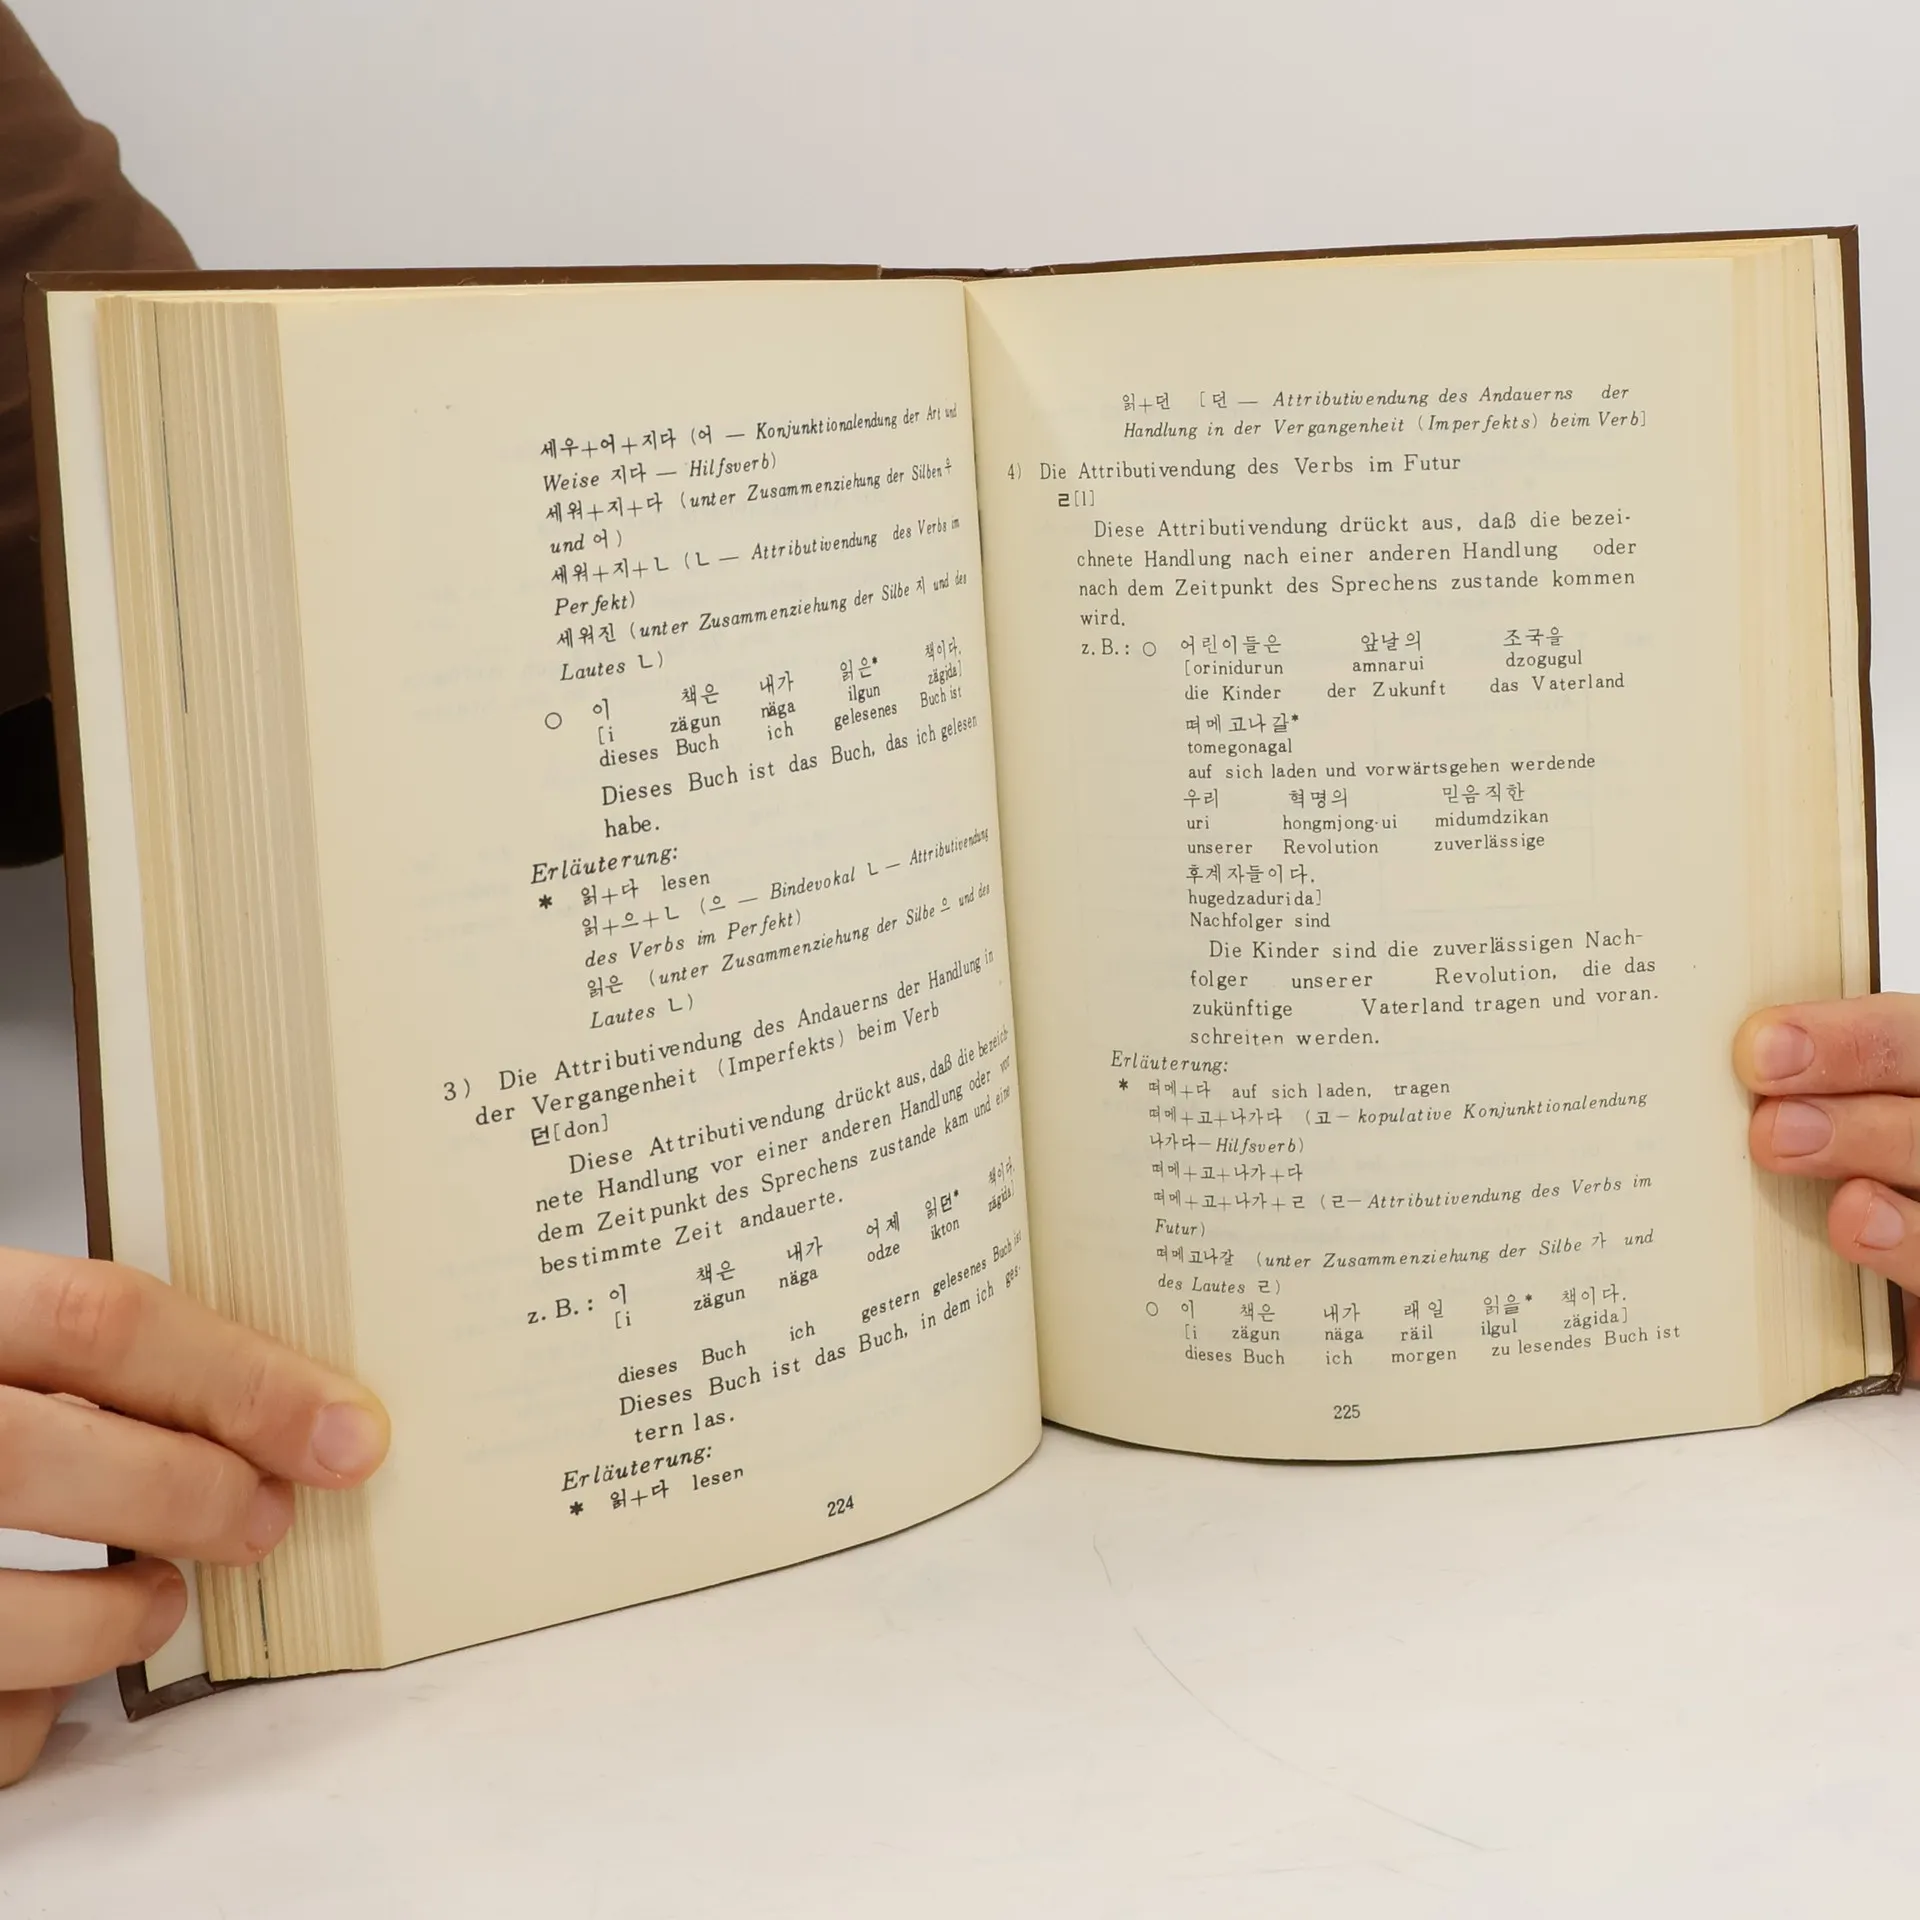 세우+어+지다 (어 — Konjunktionalendung der Art und
Weise 지다 — Hilfsverb)
세워+지+다 (unter Zusammenziehung der Silben 우
und 어)
세워+지+ㄴ (ㄴ — Attributivendung des Verbs im
Perfekt)
세워진 (unter Zusammenziehung der Silbe 지 und des
Lautes ㄴ)
○ 이 책은 내가 읽은* 책이다.
[i zägun näga ilgun zägida]
dieses Buch ich gelesenes Buch ist
Dieses Buch ist das Buch, das ich gelesen
habe.
Erläuterung:
* 읽+다 lesen
읽+으+ㄴ (으 — Bindevokal ㄴ — Attributivendung
des Verbs im Perfekt)
읽은 (unter Zusammenziehung der Silbe 으 und des
Lautes ㄴ)
3) Die Attributivendung des Andauerns der Handlung in
der Vergangenheit (Imperfekts) beim Verb
던[don]
Diese Attributivendung drückt aus, daß die bezeich-
nete Handlung vor einer anderen Handlung oder vor
dem Zeitpunkt des Sprechens zustande kam und eine
bestimmte Zeit andauerte.
z. B.: 이 책은 내가 어제 읽던* 책이다.
[i zägun näga odze ikton zägida]
dieses Buch ich gestern gelesenes Buch ist
Dieses Buch ist das Buch, in dem ich ges-
tern las.
Erläuterung:
* 읽+다 lesen
224
읽+던 [던 — Attributivendung des Andauerns der
Handlung in der Vergangenheit (Imperfekts) beim Verb]
4) Die Attributivendung des Verbs im Futur
ㄹ[l]
Diese Attributivendung drückt aus, daß die bezei-
chnete Handlung nach einer anderen Handlung oder
nach dem Zeitpunkt des Sprechens zustande kommen
wird.
z. B.: ○ 어린이들은 앞날의 조국을
[orinidurun amnarui dzogugul
die Kinder der Zukunft das Vaterland
떠메고나갈*
tomegonagal
auf sich laden und vorwärtsgehen werdende
우리 혁명의 믿음직한
uri hongmjong-ui midumdzikan
unserer Revolution zuverlässige
후계자들이다.
hugedzadurida]
Nachfolger sind
Die Kinder sind die zuverlässigen Nach-
folger unserer Revolution, die das
zukünftige Vaterland tragen und voran-
schreiten werden.
Erläuterung:
* 떠메+다 auf sich laden, tragen
떠메+고+나가다 (고 — kopulative Konjunktionalendung
나가다 — Hilfsverb)
떠메+고+나가+다
떠메+고+나가+ㄹ (ㄹ — Attributivendung des Verbs im
Futur)
떠메고나갈 (unter Zusammenziehung der Silbe 가 und
des Lautes ㄹ)
○ 이 책은 내가 래일 읽을* 책이다.
[i zägun näga räil ilgul zägida]
dieses Buch ich morgen zu lesendes Buch ist
225